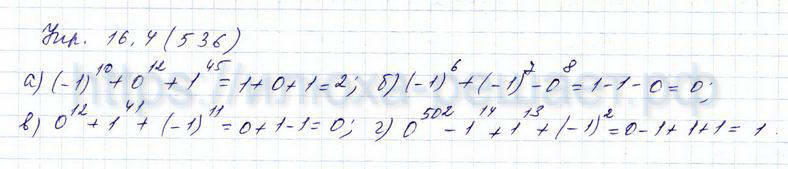 Упр. 16.4 (536)
а) (-1)^10 + 0^12 + 1^45 = 1+0+1=2; б) (-1)^6 + (-1)^7 - 0^8 = 1-1-0=0;
в) 0^12 + 1^41 + (-1)^11 = 0+1-1=0; г) 0^502 - 1^14 + 1^13 + (-1)^2 = 0-1+1+1= 1.